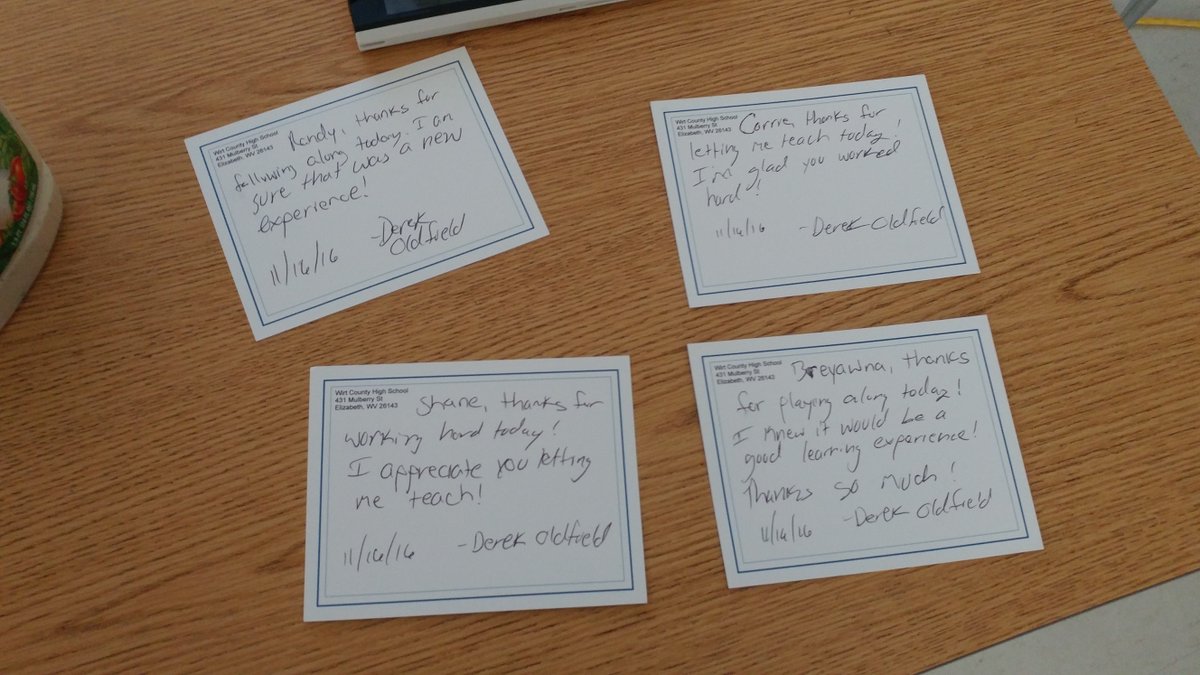 Wirt County High School
431 Mulberry St
Elizabeth, WV 26143
Randy, thanks for
following along today. I am
sure that was a new
experience!
-Derek
Oldfield
11/16/16
Wirt County High School
431 Mulberry St
Elizabeth, WV 26143
Corrie, thanks for
letting me teach today!
I'm glad you worked
hard!
11/16/16 -Derek Oldfield
Wirt County High School
431 Mulberry St
Elizabeth, WV 26143
Shane, thanks for
working hard today!
I appreciate you letting
me teach!
11/16/16 -Derek Oldfield
Wirt County High School
431 Mulberry St
Elizabeth, WV 26143
Breyawna, thanks
for playing along today!
I knew it would be a
good learning experience!
Thanks so much!
11/16/16 -Derek Oldfield